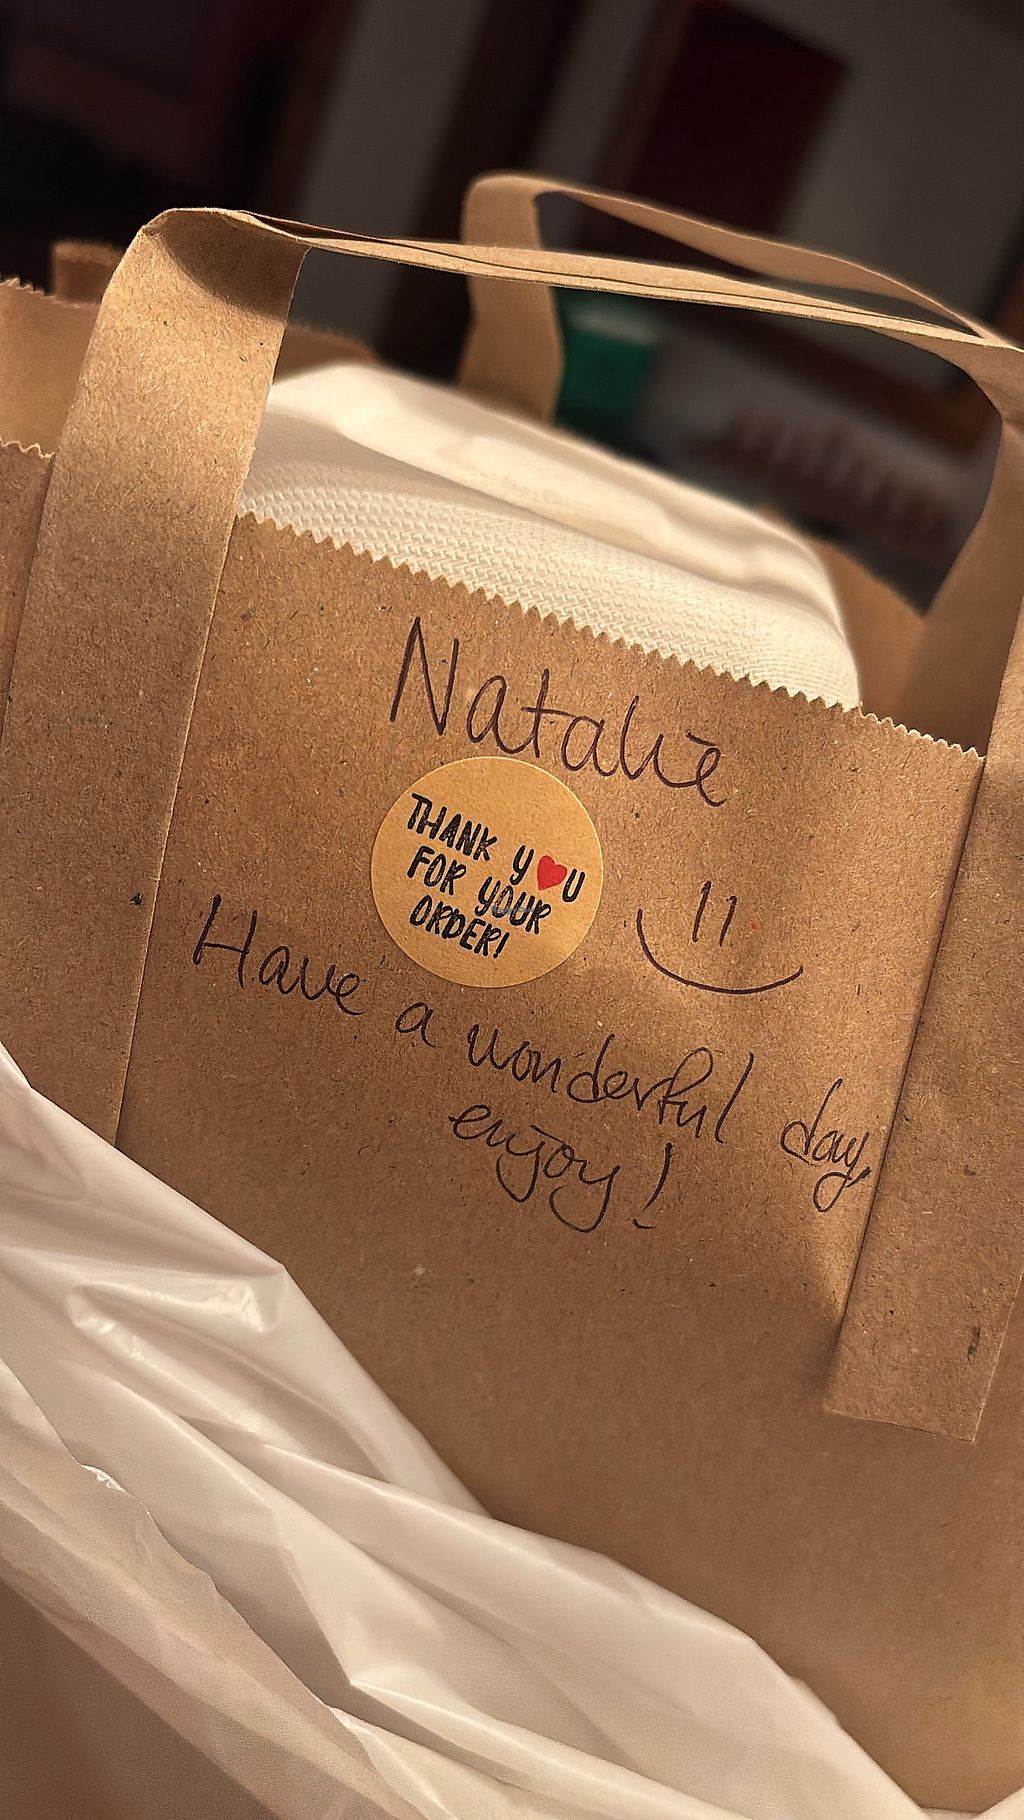 Natalie
THANK Y❤U
FOR YOUR
ORDER!
Have a wonderful day,
enjoy!